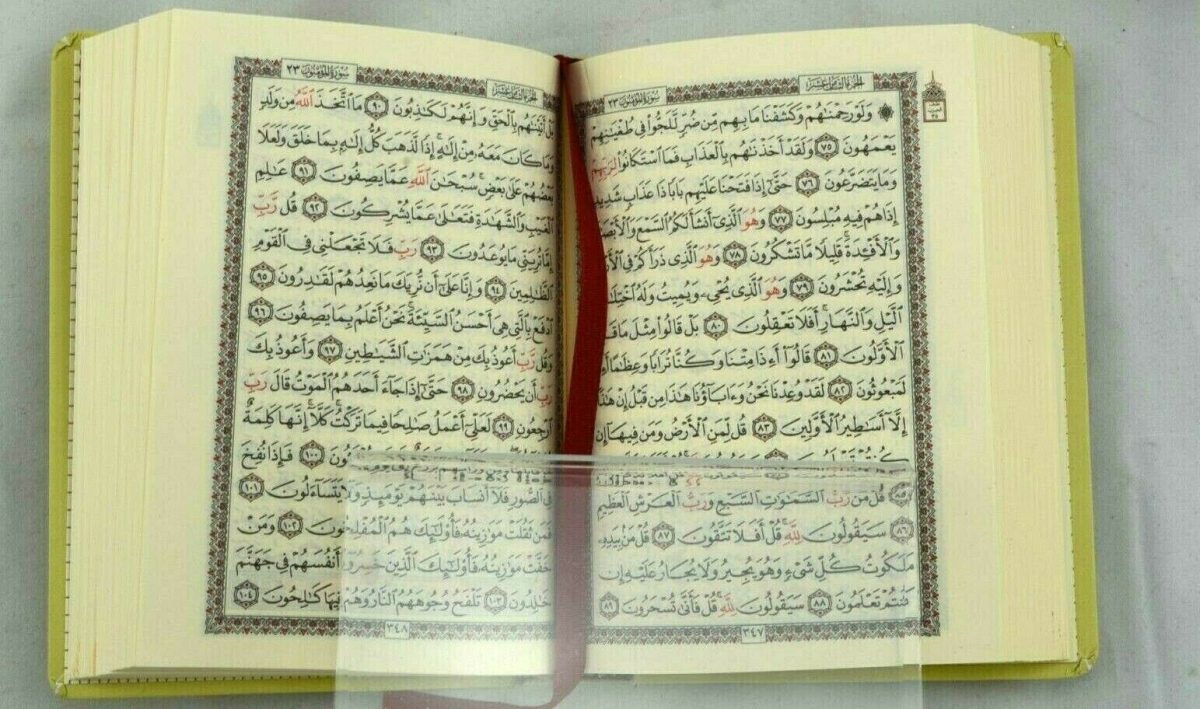 الجزء الثامن عشر سورة المؤمنون ٢٣
الحزب ٣٥
۞ وَلَوْ رَحِمْنَٰهُمْ وَكَشَفْنَا مَا بِهِم مِّن ضُرٍّ لَّلَجُّوا۟ فِى طُغْيَٰنِهِمْ
يَعْمَهُونَ ٧٥ وَلَقَدْ أَخَذْنَٰهُم بِٱلْعَذَابِ فَمَا ٱسْتَكَانُوا۟ لِرَبِّهِمْ
وَمَا يَتَضَرَّعُونَ ٧٦ حَتَّىٰٓ إِذَا فَتَحْنَا عَلَيْهِم بَابًا ذَا عَذَابٍ شَدِيدٍ
إِذَا هُمْ فِيهِ مُبْلِسُونَ ٧٧ وَهُوَ ٱلَّذِىٓ أَنشَأَ لَكُمُ ٱلسَّمْعَ وَٱلْأَبْصَ
وَٱلْأَفْـِٔدَةَ ۚ قَلِيلًا مَّا تَشْكُرُونَ ٧٨ وَهُوَ ٱلَّذِى ذَرَأَكُمْ فِى ٱلْأَر
وَإِلَيْهِ تُحْشَرُونَ ٧٩ وَهُوَ ٱلَّذِى يُحْىِۦ وَيُمِيتُ وَلَهُ ٱخْتِلَٰ
ٱلَّيْلِ وَٱلنَّهَارِ ۚ أَفَلَا تَعْقِلُونَ ٨٠ بَلْ قَالُوا۟ مِثْلَ مَا قَا
ٱلْأَوَّلُونَ ٨١ قَالُوٓا۟ أَءِذَا مِتْنَا وَكُنَّا تُرَابًا وَعِظَٰمًا أَءِ
لَمَبْعُوثُونَ ٨٢ لَقَدْ وُعِدْنَا نَحْنُ وَءَابَآؤُنَا هَٰذَا مِن قَبْلُ إِنْ هَٰذَ
إِلَّآ أَسَٰطِيرُ ٱلْأَوَّلِينَ ٨٣ قُل لِّمَنِ ٱلْأَرْضُ وَمَن فِيهَآ إِن
كُنتُمْ تَعْلَمُونَ
قُلْ مَن رَّبُّ ٱلسَّمَٰوَٰتِ ٱلسَّبْعِ وَرَبُّ ٱلْعَرْشِ ٱلْعَظِيمِ
٨٦ سَيَقُولُونَ لِلَّهِ ۚ قُلْ أَفَلَا تَتَّقُونَ ٨٧ قُلْ مَنۢ بِيَدِهِۦ
مَلَكُوتُ كُلِّ شَىْءٍ وَهُوَ يُجِيرُ وَلَا يُجَارُ عَلَيْهِ إِن
كُنتُمْ تَعْلَمُونَ ٨٨ سَيَقُولُونَ لِلَّهِ ۚ قُلْ فَأَنَّىٰ تُسْحَرُونَ ٨٩
٣٤٧
الجزء الثامن عشر سورة المؤمنون ٢٣
بَلْ أَتَيْنَٰهُم بِٱلْحَقِّ وَإِنَّهُمْ لَكَٰذِبُونَ ٩٠ مَا ٱتَّخَذَ ٱللَّهُ مِن وَلَدٍ
وَمَا كَانَ مَعَهُۥ مِنْ إِلَٰهٍ ۚ إِذًا لَّذَهَبَ كُلُّ إِلَٰهٍۭ بِمَا خَلَقَ وَلَعَلَا
بَعْضُهُمْ عَلَىٰ بَعْضٍ ۚ سُبْحَٰنَ ٱللَّهِ عَمَّا يَصِفُونَ ٩١ عَٰلِمِ
ٱلْغَيْبِ وَٱلشَّهَٰدَةِ فَتَعَٰلَىٰ عَمَّا يُشْرِكُونَ ٩٢ قُل رَّبِّ
إِمَّا تُرِيَنِّى مَا يُوعَدُونَ ٩٣ رَبِّ فَلَا تَجْعَلْنِى فِى ٱلْقَوْمِ
ٱلظَّٰلِمِينَ ٩٤ وَإِنَّا عَلَىٰٓ أَن نُّرِيَكَ مَا نَعِدُهُمْ لَقَٰدِرُونَ ٩٥
ٱدْفَعْ بِٱلَّتِى هِىَ أَحْسَنُ ٱلسَّيِّئَةَ ۚ نَحْنُ أَعْلَمُ بِمَا يَصِفُونَ ٩٦
وَقُل رَّبِّ أَعُوذُ بِكَ مِنْ هَمَزَٰتِ ٱلشَّيَٰطِينِ ٩٧ وَأَعُوذُ بِكَ
رَبِّ أَن يَحْضُرُونِ ٩٨ حَتَّىٰٓ إِذَا جَآءَ أَحَدَهُمُ ٱلْمَوْتُ قَالَ رَبِّ
ٱرْجِعُونِ ٩٩ لَعَلِّىٓ أَعْمَلُ صَٰلِحًا فِيمَا تَرَكْتُ ۚ كَلَّآ ۚ إِنَّهَا كَلِمَةٌ
ونَ ١٠٠ فَإِذَا نُفِخَ
فِى ٱلصُّورِ فَلَآ أَنسَابَ بَيْنَهُمْ يَوْمَئِذٍ وَلَا يَتَسَآءَلُونَ ١٠١
فَمَن ثَقُلَتْ مَوَٰزِينُهُۥ فَأُو۟لَٰٓئِكَ هُمُ ٱلْمُفْلِحُونَ ١٠٢ وَمَنْ
خَفَّتْ مَوَٰزِينُهُۥ فَأُو۟لَٰٓئِكَ ٱلَّذِينَ خَسِرُوٓا۟ أَنفُسَهُمْ فِى جَهَنَّمَ
خَٰلِدُونَ ١٠٣ تَلْفَحُ وُجُوهَهُمُ ٱلنَّارُ وَهُمْ فِيهَا كَٰلِحُونَ ١٠٤
٣٤٨